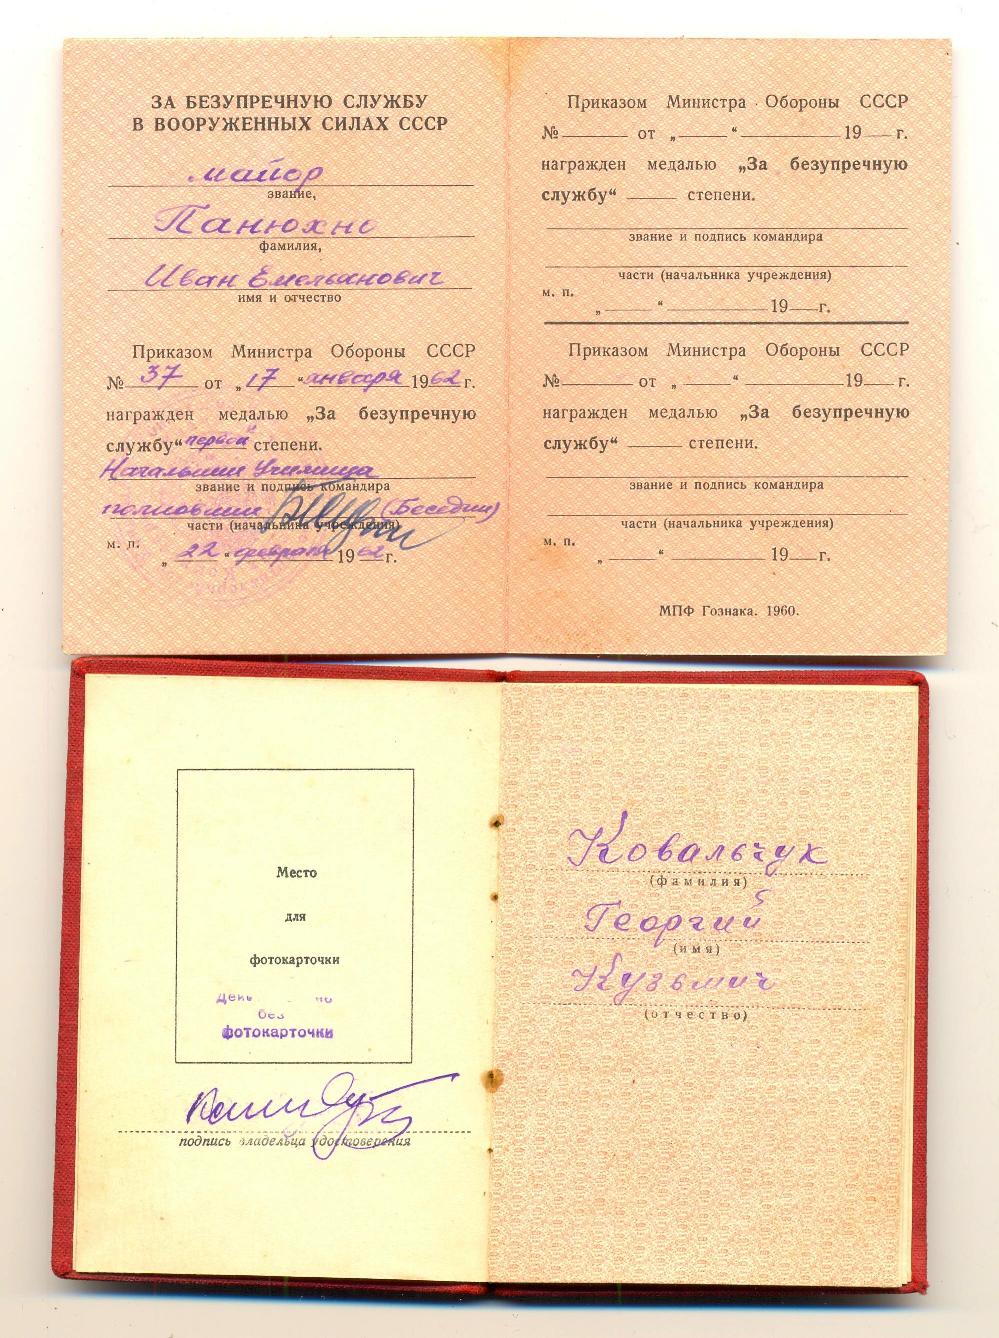 ЗА БЕЗУПРЕЧНУЮ СЛУЖБУ
В ВООРУЖЕННЫХ СИЛАХ СССР
майор
звание,
Панюхно
фамилия,
Иван Емельянович
имя и отчество
Приказом Министра Обороны СССР
№ 37 от „17“ января 1962 г.
награжден медалью „За безупречную
службу“ первой степени.
Начальник Училища
звание и подпись командира
полковник (Беседин)
части (начальника учреждения)
м. п.
„22“ февраля 1962 г.
Приказом Министра Обороны СССР
№ от „ “ 19 г.
награжден медалью „За безупречную
службу“ степени.
звание и подпись командира
части (начальника учреждения)
м. п.
„ “ 19 г.
Приказом Министра Обороны СССР
№ от „ “ 19 г.
награжден медалью „За безупречную
службу“ степени.
звание и подпись командира
части (начальника учреждения)
м. п.
„ “ 19 г.
МПФ Гознака. 1960.
Место
для
фотокарточки
без
фотокарточки
подпись владельца удостоверения
Ковальчук
(фамилия)
Георгий
(имя)
Кузьмич
(отчество)